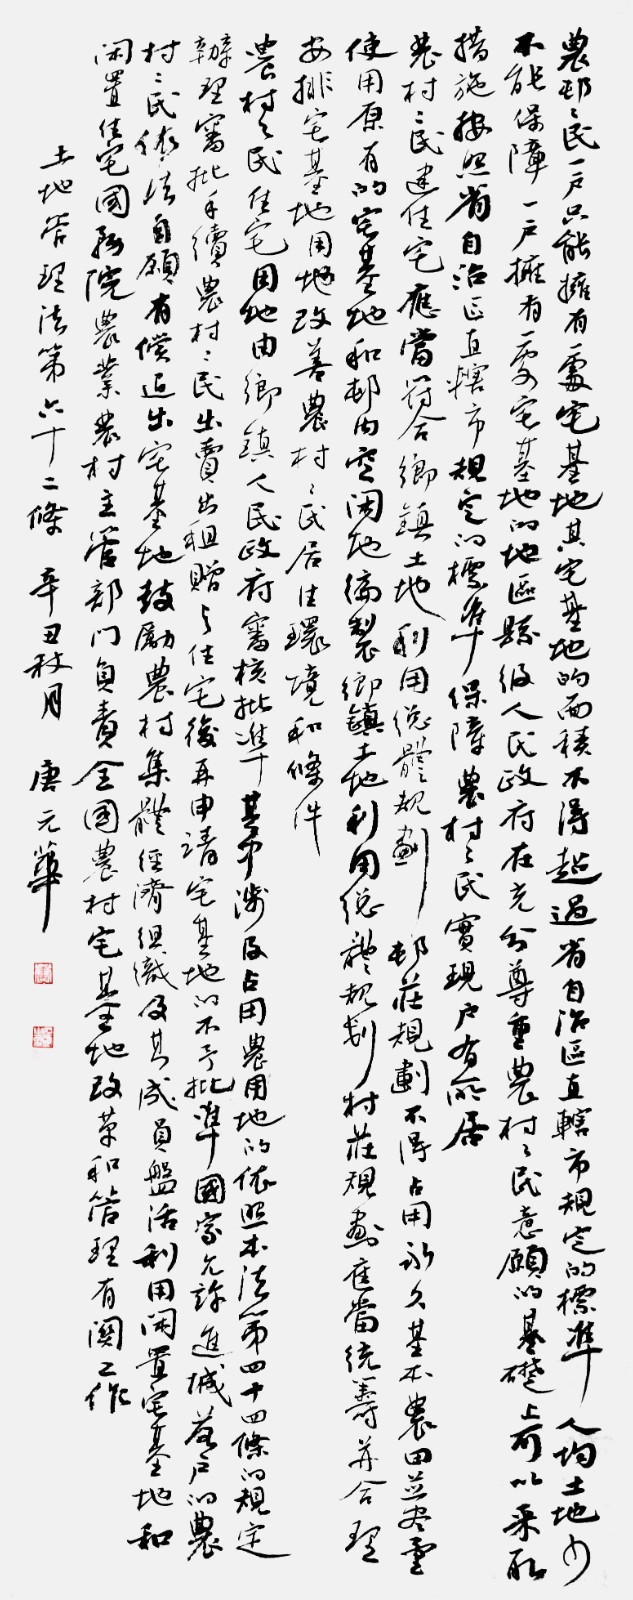 農邨〻民一戶只能擁有一處宅基地其宅基地的面積不得超過省自治區直轄市規定的標準 人均土地少
不能保障一戶擁有一處宅基地的地區縣級人民政府在充分尊重農村〻民意願的基礎上可以采取
措施按照省自治區直轄市規定的標準保障農村〻民實現戶有所居
農村〻民建住宅應當符合鄉鎮土地利用總體規劃 邨莊規劃不得占用永久基本農田並盡量
使用原有的宅基地和邨內空閑地編製鄉鎮土地利用總體規划村莊規劃應當統籌并合理
安排宅基地用地改善農村〻民居住環境和條件
農村〻民住宅用地由鄉鎮人民政府審核批準其中涉及占用農用地的依照本法第四十四條的規定
辦理審批手續農村〻民出賣出租贈與住宅後再申請宅基地的不予批準國家允許進城落戶的農
村〻民依法自願有償退出宅基地鼓勵農村集體經濟組織及其成員盤活利用閑置宅基地和
閑置住宅國務院農業農村主管部門負責全國農村宅基地改革和管理有關工作
土地管理法第六十二條 辛丑秋月 唐元華